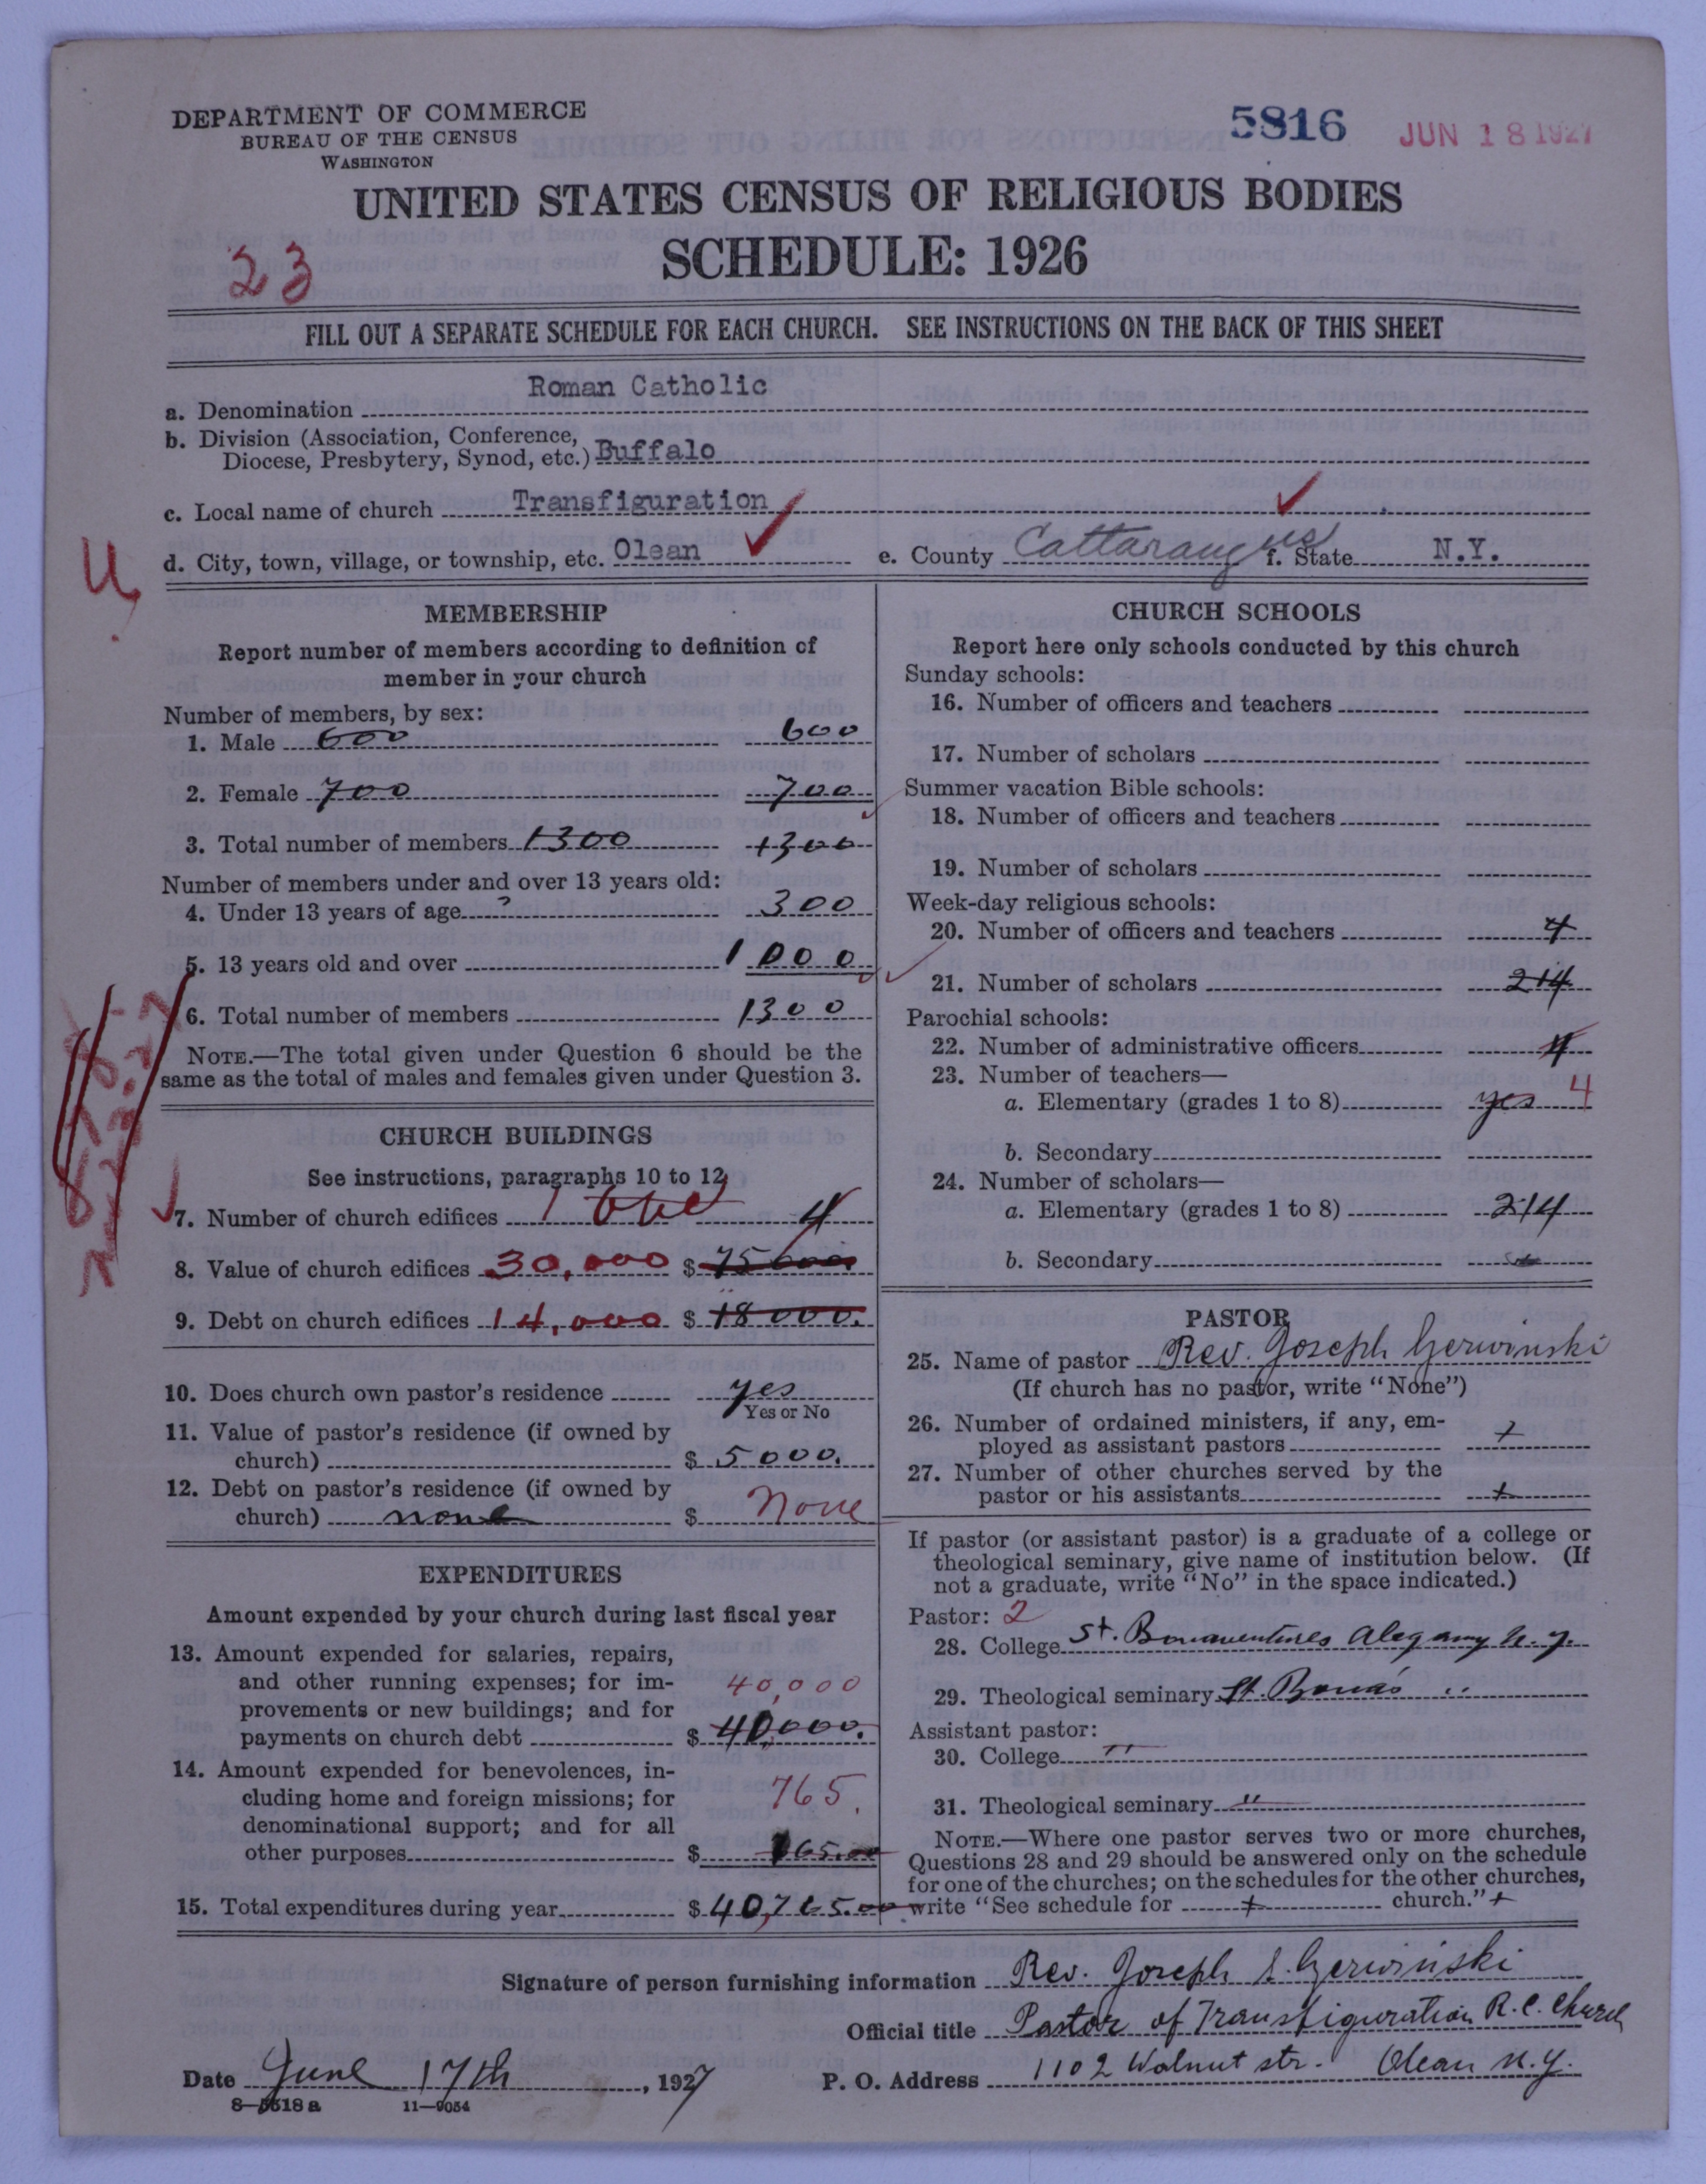 DEPARTMENT OF COMMERCE
BUREAU OF THE CENSUS
WASHINGTON
5816 JUN 18 1927
UNITED STATES CENSUS OF RELIGIOUS BODIES
SCHEDULE: 1926
23
FILL OUT A SEPARATE SCHEDULE FOR EACH CHURCH. SEE INSTRUCTIONS ON THE BACK OF THIS SHEET
a. Denomination Roman Catholic
b. Division (Association, Conference,
Diocese, Presbytery, Synod, etc.) Buffalo
c. Local name of church Transfiguration
d. City, town, village, or township, etc. Olean e. County Cattaraugus f. State N.Y.
MEMBERSHIP
Report number of members according to definition of
member in your church
Number of members, by sex:
1. Male 600 600
2. Female 700 700
3. Total number of members 1300 1300
Number of members under and over 13 years old:
4. Under 13 years of age ? 300
5. 13 years old and over 1000
6. Total number of members 1300
NOTE.—The total given under Question 6 should be the
same as the total of males and females given under Question 3.
CHURCH BUILDINGS
See instructions, paragraphs 10 to 12
7. Number of church edifices 1 one 4
8. Value of church edifices 30,000 $ 75000.
9. Debt on church edifices 14,000 $ 18000.
10. Does church own pastor's residence yes
Yes or No
11. Value of pastor's residence (if owned by
church) $ 5000.
12. Debt on pastor's residence (if owned by
church) none $ None
EXPENDITURES
Amount expended by your church during last fiscal year
13. Amount expended for salaries, repairs,
and other running expenses; for im-
provements or new buildings; and for 40,000
payments on church debt $ 40,000.
14. Amount expended for benevolences, in-
cluding home and foreign missions; for 765.
denominational support; and for all
other purposes $ 765.00
15. Total expenditures during year $ 40,765.00
CHURCH SCHOOLS
Report here only schools conducted by this church
Sunday schools:
16. Number of officers and teachers
17. Number of scholars
Summer vacation Bible schools:
18. Number of officers and teachers
19. Number of scholars
Week-day religious schools:
20. Number of officers and teachers 4
21. Number of scholars 214
Parochial schools:
22. Number of administrative officers 4
23. Number of teachers—
a. Elementary (grades 1 to 8) yes 4
b. Secondary
24. Number of scholars—
a. Elementary (grades 1 to 8) 214
b. Secondary
PASTOR
25. Name of pastor Rev. Joseph Gerwinski
(If church has no pastor, write "None")
26. Number of ordained ministers, if any, em-
ployed as assistant pastors +
27. Number of other churches served by the
pastor or his assistants +
If pastor (or assistant pastor) is a graduate of a college or
theological seminary, give name of institution below. (If
not a graduate, write "No" in the space indicated.)
Pastor: 2
28. College St. Bonaventures Alegany N.Y.
29. Theological seminary St. Bonas "
Assistant pastor:
30. College "
31. Theological seminary "
NOTE.—Where one pastor serves two or more churches,
Questions 28 and 29 should be answered only on the schedule
for one of the churches; on the schedules for the other churches,
write "See schedule for + church." +
Signature of person furnishing information Rev. Joseph S. Gerwinski
Official title Pastor of Transfiguration R.C. Church
Date June 17th, 1927 P. O. Address 1102 Walnut str. Olean N.Y.
8—5518 a 11—9054